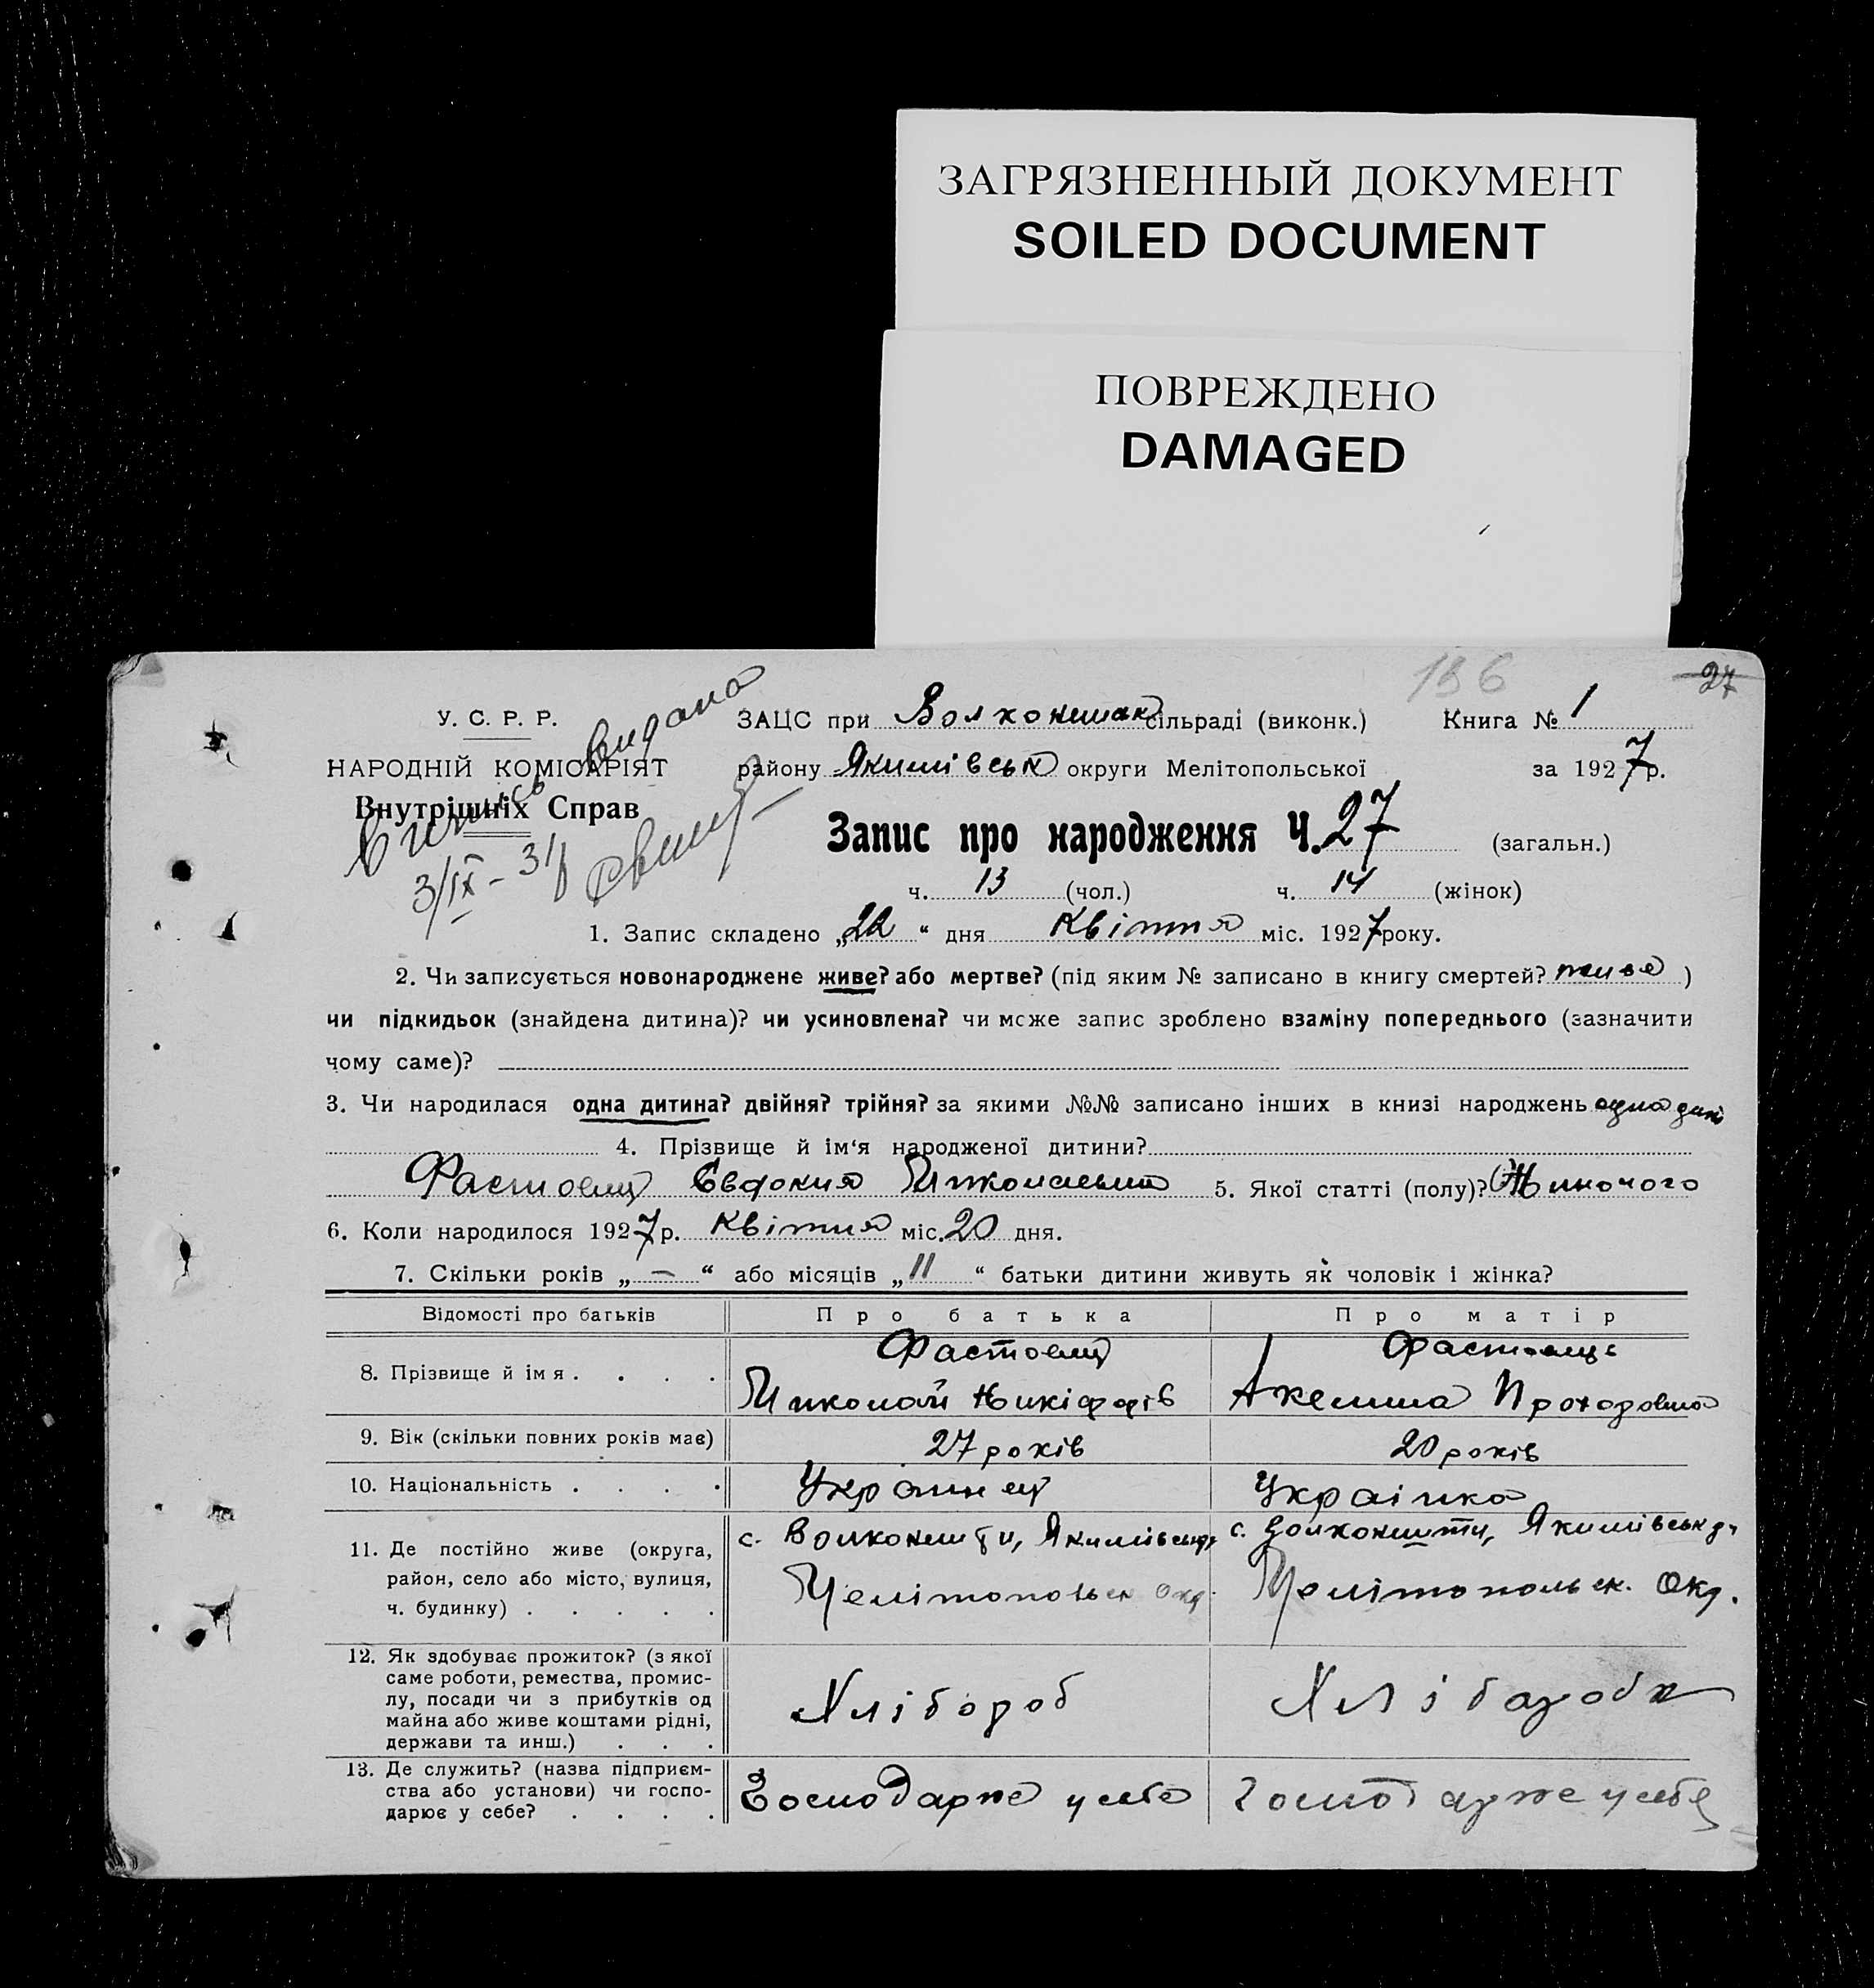 ЗАГРЯЗНЕННЫЙ ДОКУМЕНТ
SOILED DOCUMENT
ПОВРЕЖДЕНО
DAMAGED
136
27
У. С. Р. Р.
НАРОДНІЙ КОМІСАРІЯТ
Внутрішніх Справ
видана
3/IX-31
ЗАЦС при Волконешак сільраді (виконк.) Книга № 1
району Якимівськ округи Мелітопольської за 1927 р.
Запис про народження Ч. 27 (загальн.)
ч. 13 (чол.) ч. 14 (жінок)
1. Запис складено „22“ дня Квітня міс. 1927 року.
2. Чи записується новонароджене живе? або мертве? (під яким № записано в книгу смертей? живе )
чи підкидьок (знайдена дитина)? чи усиновлена? чи може запис зроблено взаміну попереднього (зазначити
чому саме)?
3. Чи народилася одна дитина? двійня? трійня? за якими №№ записано інших в книзі народжень одна дит
4. Прізвище й ім‘я народженої дитини?
Фастовец Євдокия Миколаевна 5. Якої статті (полу)? Жиночого
6. Коли народилося 1927 р. Квітня міс. 20 дня.
7. Скільки років „ — “ або місяців „ 11 “ батьки дитини живуть як чоловік і жінка?
Відомості про батьків Про батька Про матір
8. Прізвище й імя . . . . Фастовец Миколай Никіфорів Фастовець Акелина Прохоровна
9. Вік (скільки повних років має) 27 років 20 років
10. Національність . . . . Украинец Украінка
11. Де постійно живе (округа,
район, село або місто, вулиця,
ч. будинку) . . . . .
с. Волконешти, Якимівськ р. Мелітопольск Окр.
с. Волконешти, Якимівськ р. Мелітопольск. Окр.
12. Як здобуває прожиток? (з якої
саме роботи, ремества, промис-
лу, посади чи з прибутків од
майна або живе коштами рідні,
держави та инш.) . . .
Хлібороб
Хлібаробк
13. Де служить? (назва підприєм-
ства або установи) чи госпо-
дарює у себе? . . . .
Господарже у себе
Господарже у себе